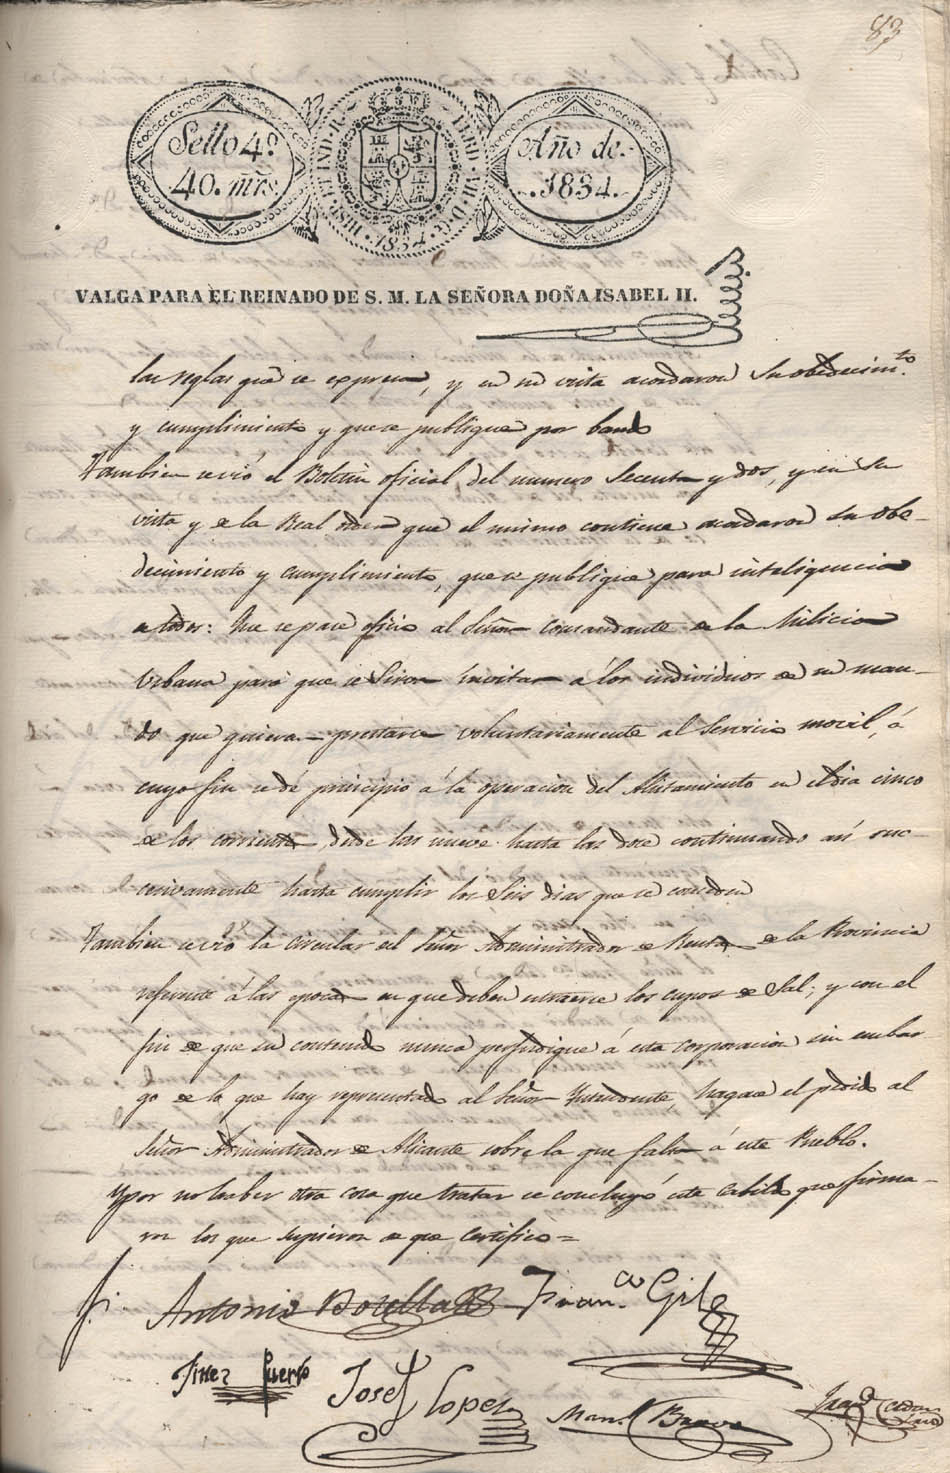 83
Sello 4º
40. mrs.
HISP. ET IND. R. FERD. VII. D. G. 1834
Año de
1834.
VALGA PARA EL REINADO DE S. M. LA SEÑORA DOÑA ISABEL II.
las reglas que se expresa, y en su vista acordaron su obedecim.to
y cumplimiento y que se publique por bando
Tambien se vió el Boletin oficial del numero Secenta y dos, y en su
vista y de la Real orden que el mismo contiene acordaron su obe-
decimiento y cumplimiento, que se publique para inteligencia
de todos: Que se pase oficio al Señor Comandante de la Milicia
Urbana para que se Sirva invitar á los individuos de su man-
do que quieran prestarse voluntariamente al Servicio movil, á
cuyo fin se dé principio á la operacion del Alistamiento en el dia cinco
de los corrientes, desde las nueve hasta las doce continuando asi suc
cesivamente hasta cumplir los Seis dias que se conceden
Tambien se vió la circular del Señor Administrador de Rentas de la Provincia
referente á las epocas en que deben extraerse los cupos de Sal; y con el
fin de que su contenido nunca perjudique á esta corporacion sin embar
go de lo que hay representado al Señor Yntendente, hagase el pedido al
Señor Administrador de Alicante sobre la que falta á este Pueblo.
Y por no haber otra cosa que tratar se concluyó este Cabildo que firma-
ron los que supieron de que Certifico =
Antonio Botella Fran.co Gil
Puerto
José Lopez
Man.l Bravo